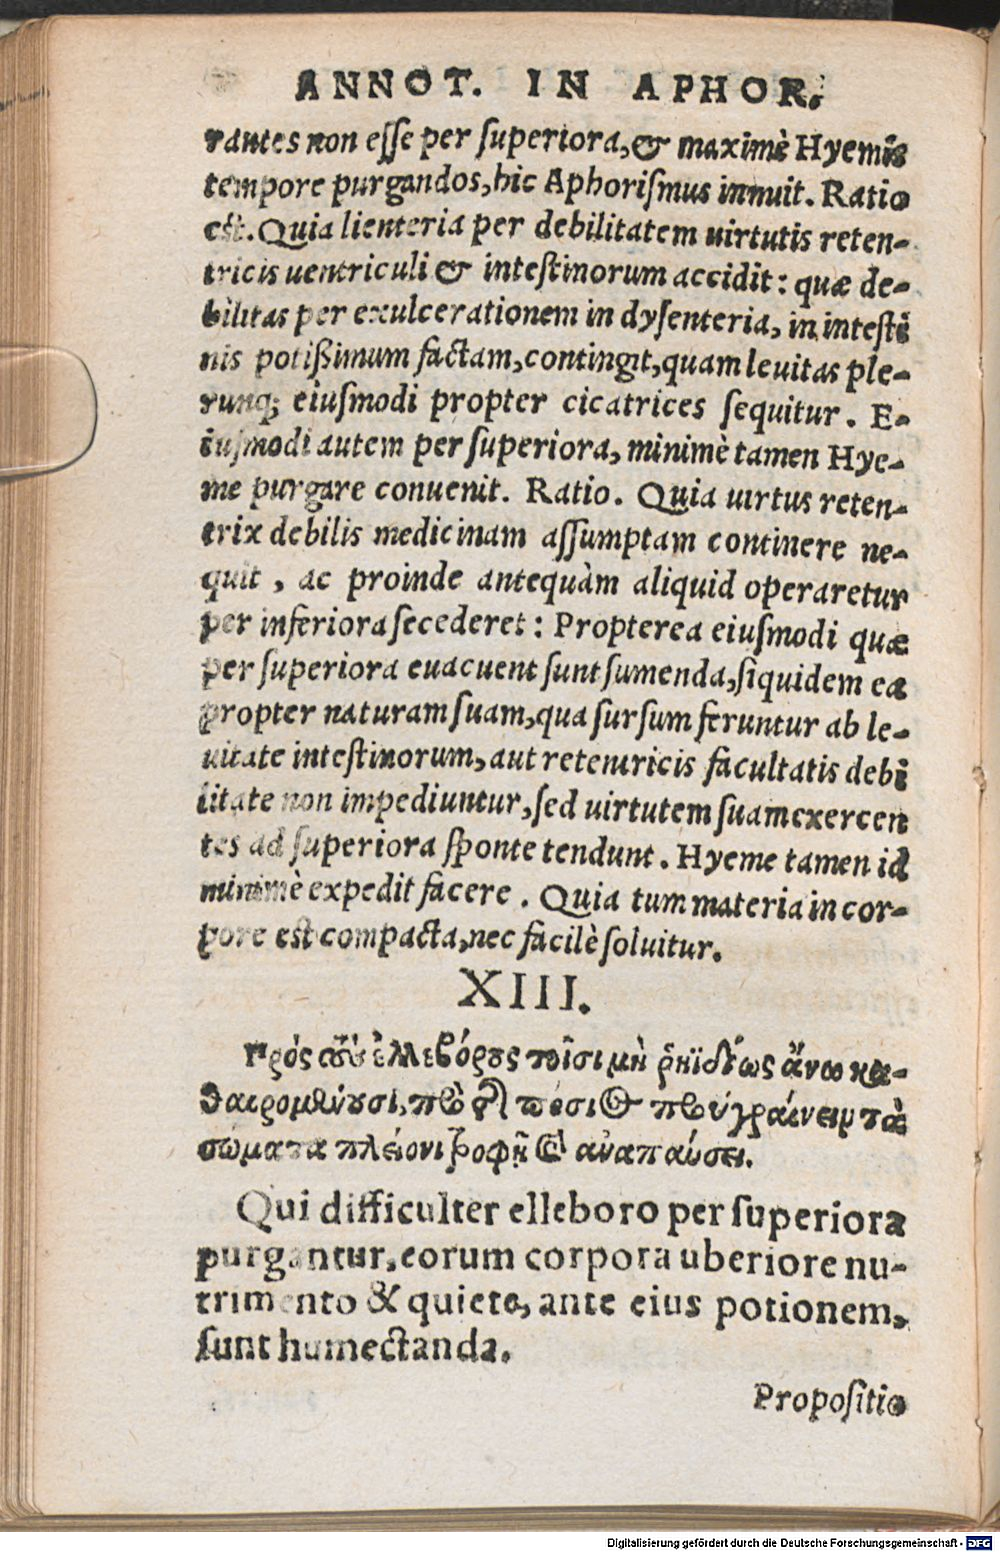 ANNOT. IN APHOR.
rantes non esse per superiora, & maximè Hyemis
tempore purgandos, hic Aphorismus innuit. Ratio
est. Quia lienteria per debilitatem uirtutis reten-
tricis uentriculi & intestinorum accidit: quæ de-
bilitas per exulcerationem in dysenteria, in intesti
nis potißimum factam, contingit, quam leuitas ple-
runq; eiusmodi propter cicatrices sequitur. E-
iusmodi autem per superiora, minimè tamen Hye-
me purgare conuenit. Ratio. Quia uirtus reten-
trix debilis medicinam assumptam continere ne-
quit, ac proinde antequàm aliquid operaretur
per inferiora secederet: Propterea eiusmodi quæ
per superiora euacuent sunt sumenda, siquidem ea
propter naturam suam, qua sursum feruntur ab le-
uitate intestinorum, aut retentricis facultatis debi
litate non impediuntur, sed uirtutem suam exercen
tes ad superiora sponte tendunt. Hyeme tamen id
minimè expedit facere. Quia tum materia in cor-
pore est compacta, nec facilè soluitur.
XIII.
Πρὸς τοὺς ἐλλεβόρους τοῖσι μὴ ῥηϊδίως ἄνω κα-
θαιρομένοισι, πρὸ τῆς πόσιος προϋγραίνειν τὰ
σώματα πλείονι τροφῇ καὶ ἀναπαύσει.
Qui difficulter elleboro per superiora
purgantur, eorum corpora uberiore nu-
trimento & quiete, ante eius potionem,
sunt humectanda.
Propositio
Digitalisierung gefördert durch die Deutsche Forschungsgemeinschaft - DFG